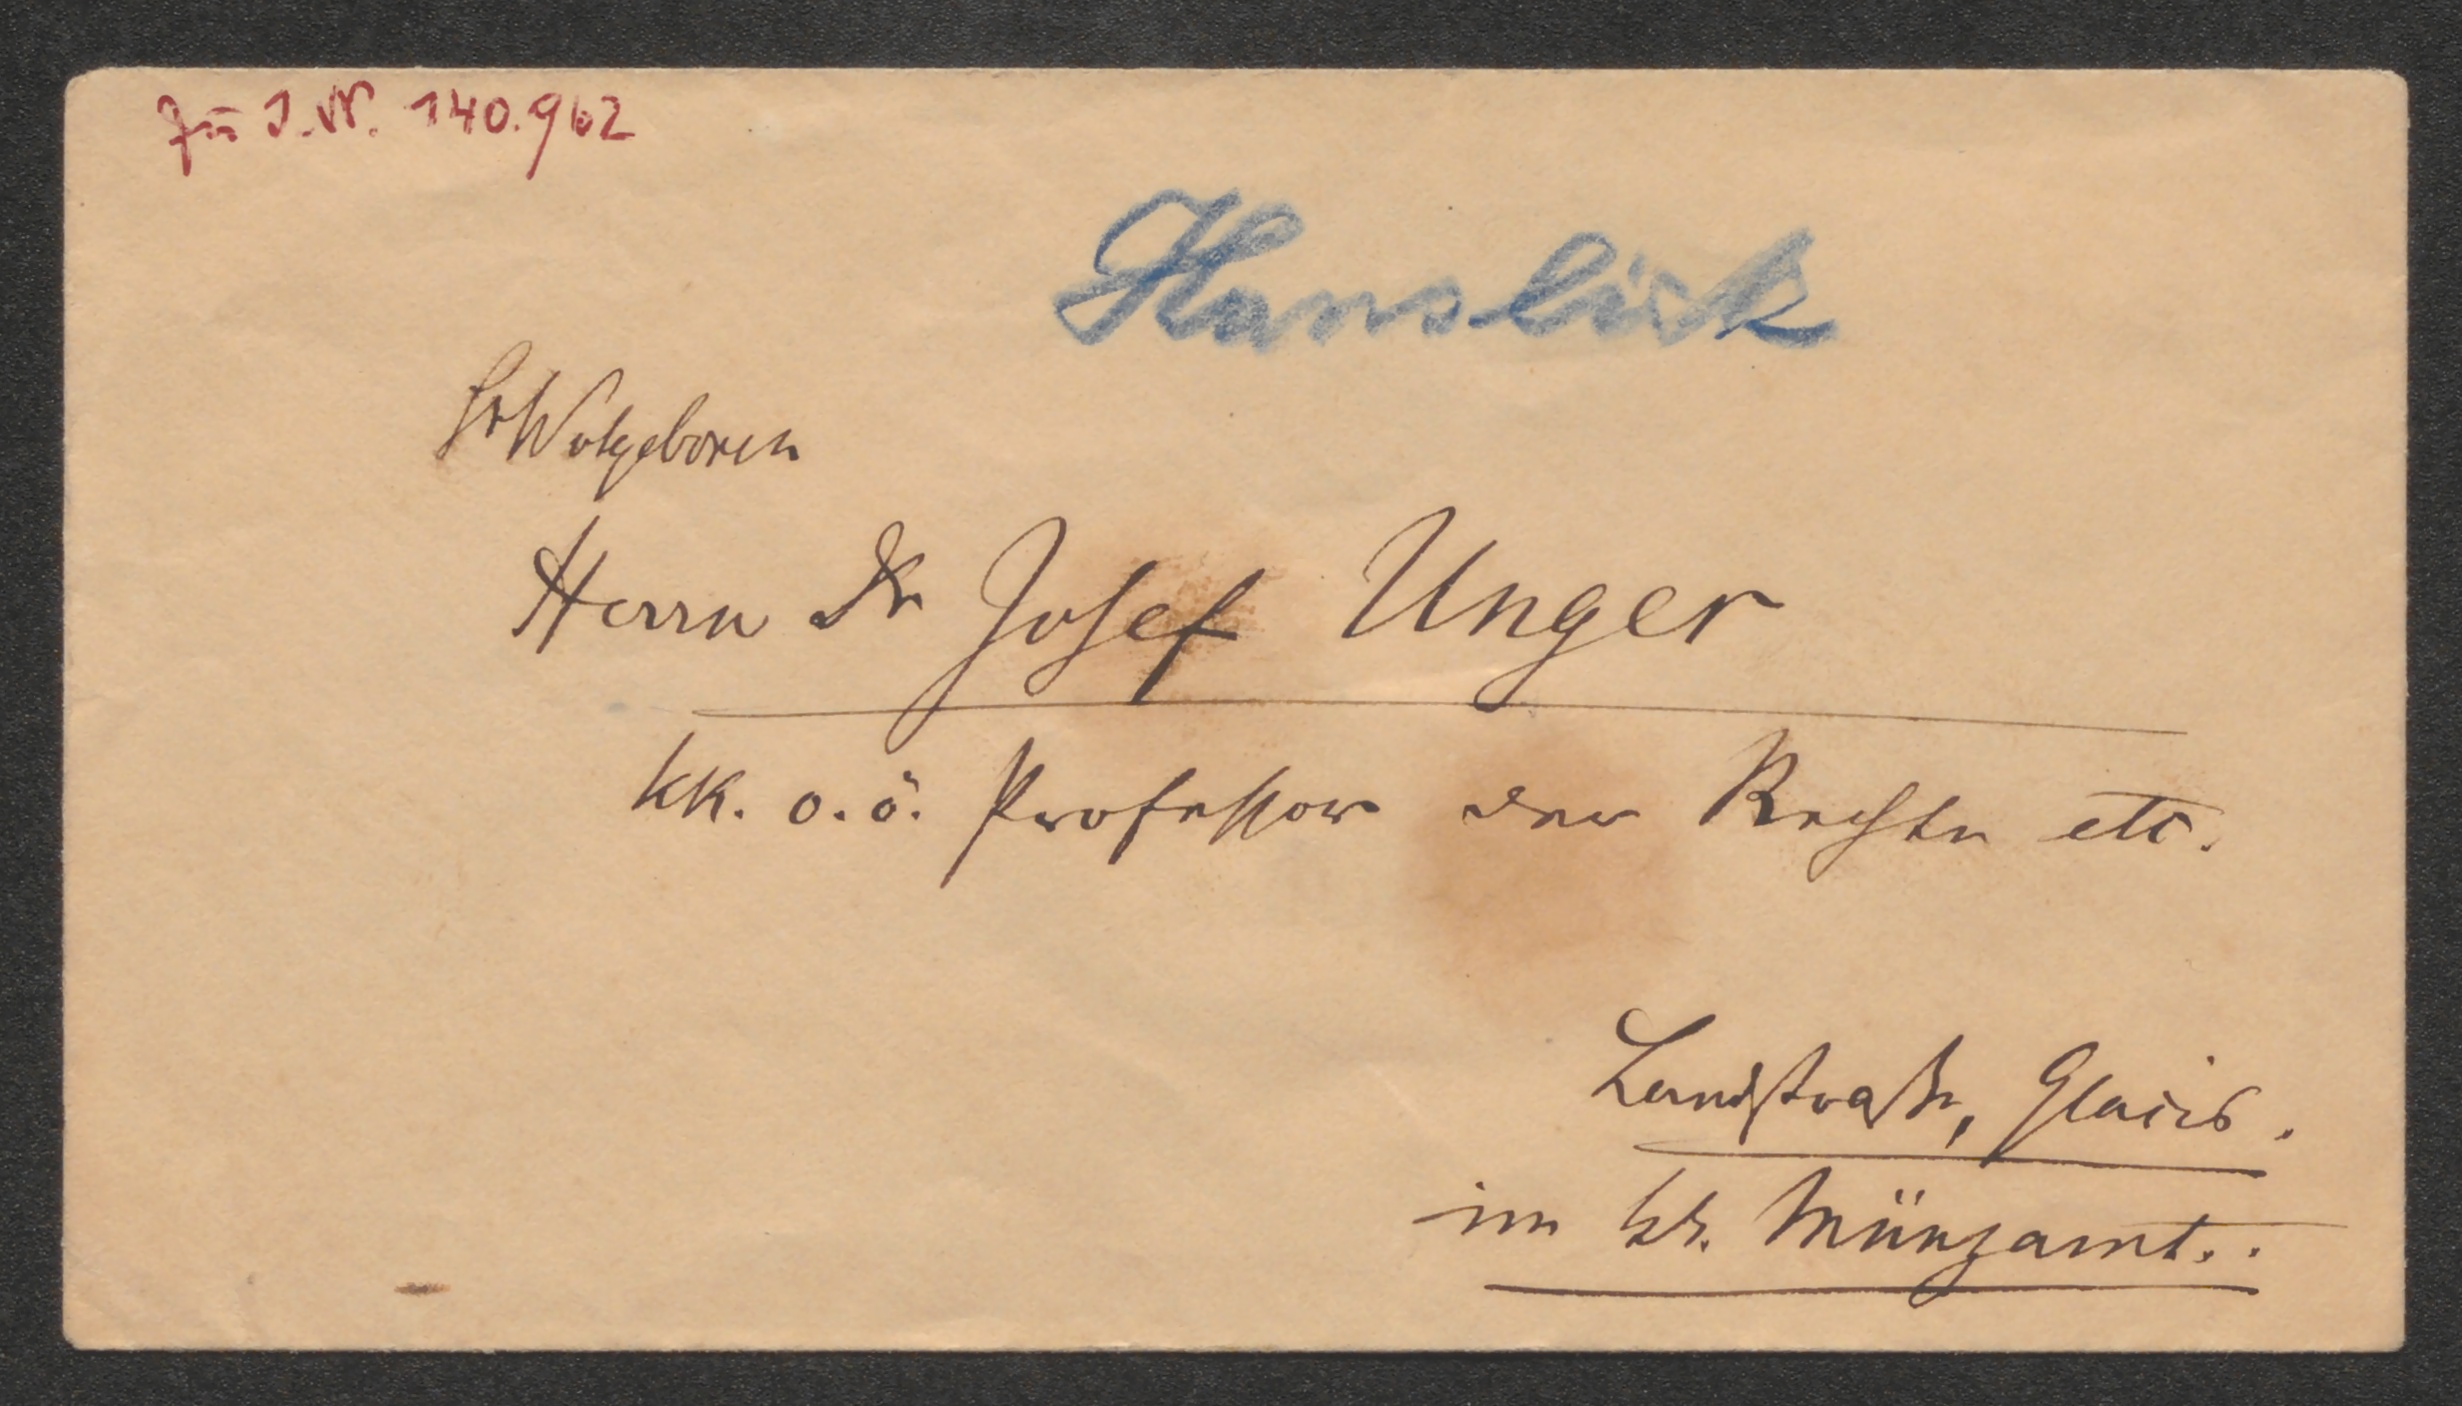 Zu I.N. 140.962
Hanslick
Sr Wolgeboren
Herrn Dr Josef Unger
kk. o. ö. Professor der Rechte etc.
Landstraße, Glacis.
im kk. Münzamt..